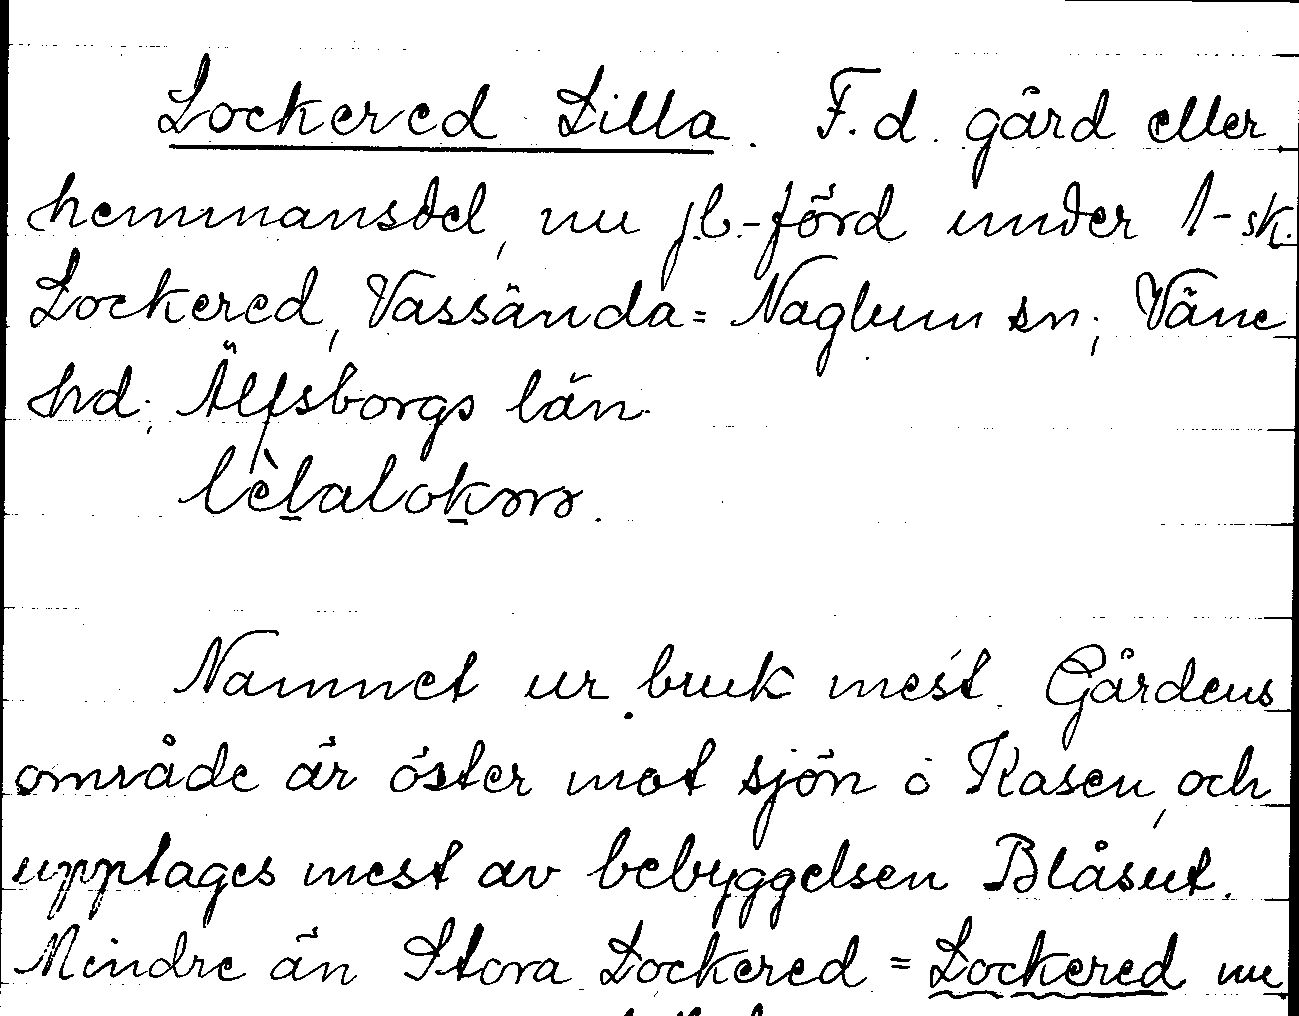 Lockered Lilla. F.d. gård eller
hemmansdel, nu jb.-förd under 1-sk.
Lockered, Vassända=Naglum sn, Väne
hd, Älfsborgs län.
Namnet ur bruk mest. Gårdens
område är öster mot sjön o Kasen, och
upptages mest av bebyggelsen Blåsut.
Mindre än Stora Lockered = Lockered nu